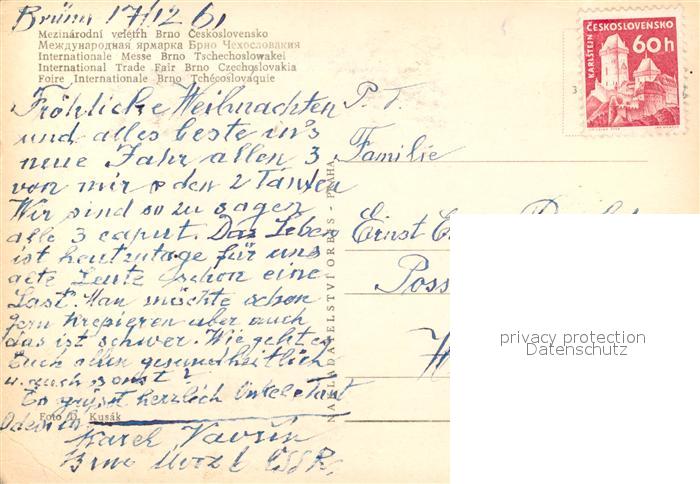 Brünn 17/12 61
Mezinárodní veletrh Brno Československo
Международная ярмарка Брно Чехословакия
Internationale Messe Brno Tschechoslowakei
International Trade Fair Brno Czechoslovakia
Foire Internationale Brno Tchécoslovaquie
Fröhliche Weihnachten
und alles beste in's
neue Jahr allen 3
von mir & den 2 Tanten
Wir sind so zu sagen
alle 3 caput. Das Leben
ist heutzutage für uns
alte Leute schon eine
Last. Man möchte schon
gern krepieren aber auch
das ist schwer. Wie geht es
Euch allen gesundheitlich
u. auch sonst?
Es grüsst herzlich Onkel
Foto D. Kusák
Karel
Brno ČSSR
NAKLADATELSTVÍ ORBIS - PRAHA
P. T.
Familie
Ernst
Poss
ČESKOSLOVENSKO
KARLŠTEJN
60h
3
privacy protection
Datenschutz